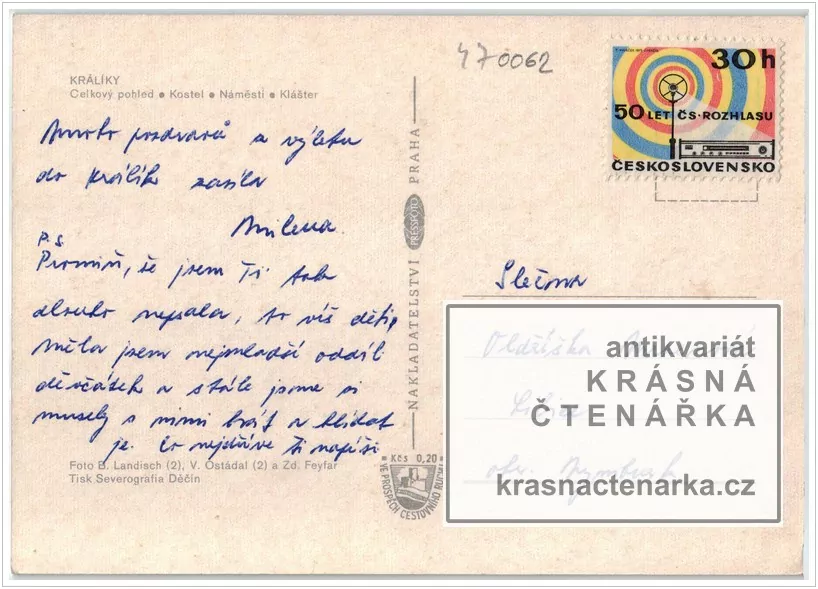 470062
30h
50 LET ČS. ROZHLASU
ČESKOSLOVENSKO
KRÁLÍKY
Celkový pohled ● Kostel ● Náměstí ● Klášter
Mnoho pozdravů z výletu
do Králík zasílá
Milena.
P.S.
Promiň, že jsem Ti tak
dlouho nepsala, to víš děti,
měla jsem nejmladší oddíl
děvčátek a stále jsme si
musely s nimi hrát a hlídat
je. Co nejdříve Ti napíši
Foto B. Landisch (2), V. Ostádal (2) a Zd. Feyfar
Tisk Severografia Děčín
NAKLADATELSTVÍ PRESSFOTO PRAHA
Kčs 0,20
VE PROSPĚCH CESTOVNÍHO RUCHU
Slečna
antikvariát
KRÁSNÁ
ČTENÁŘKA
krasnactenarka.cz